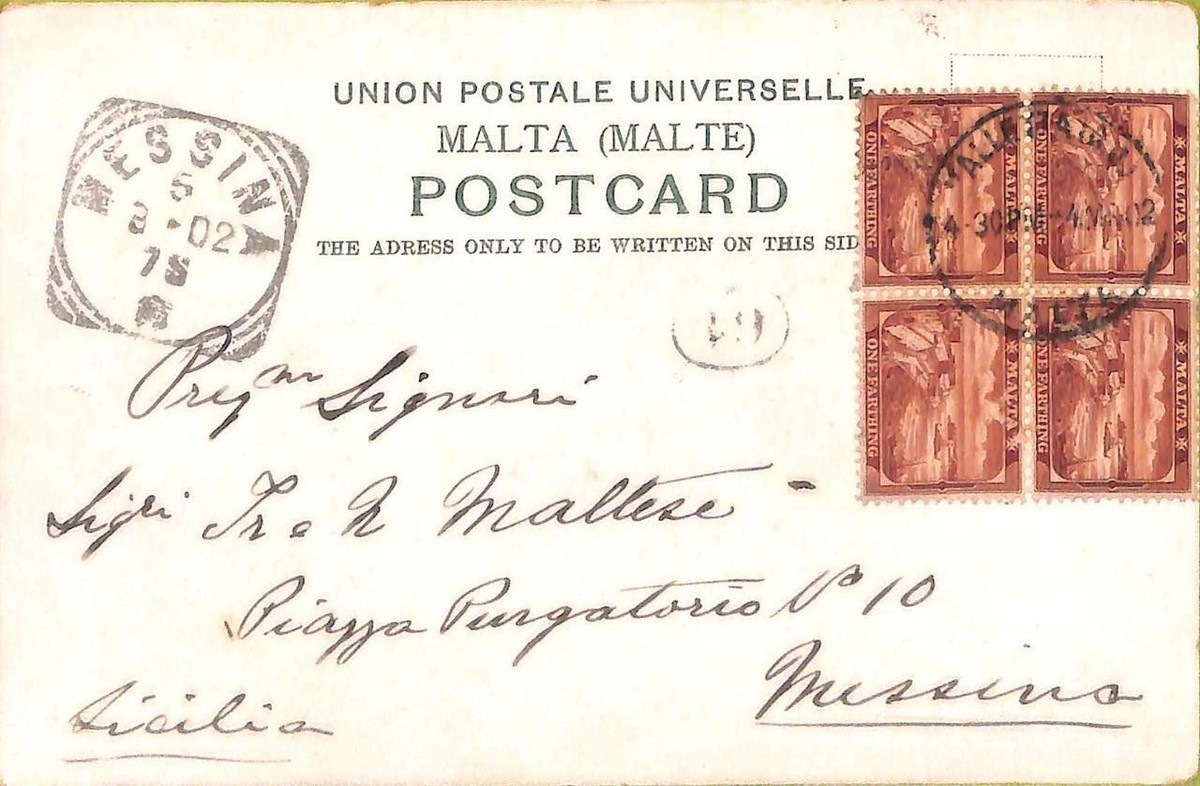 UNION POSTALE UNIVERSELLE
MALTA (MALTE)
POSTCARD
THE ADRESS ONLY TO BE WRITTEN ON THIS SID
MESSINA
5
3-02
7S
VALLETTA
4-30PM 4 MR 02
MALTA
MALTA
ONE FARTHING
MALTA
ONE FARTHING
MALTA
ONE FARTHING
MALTA
ONE FARTHING
Preg^mi Signori
Sigri Fr e N Maltese -
Piazza Purgatorio No 10
Messina
Sicilia